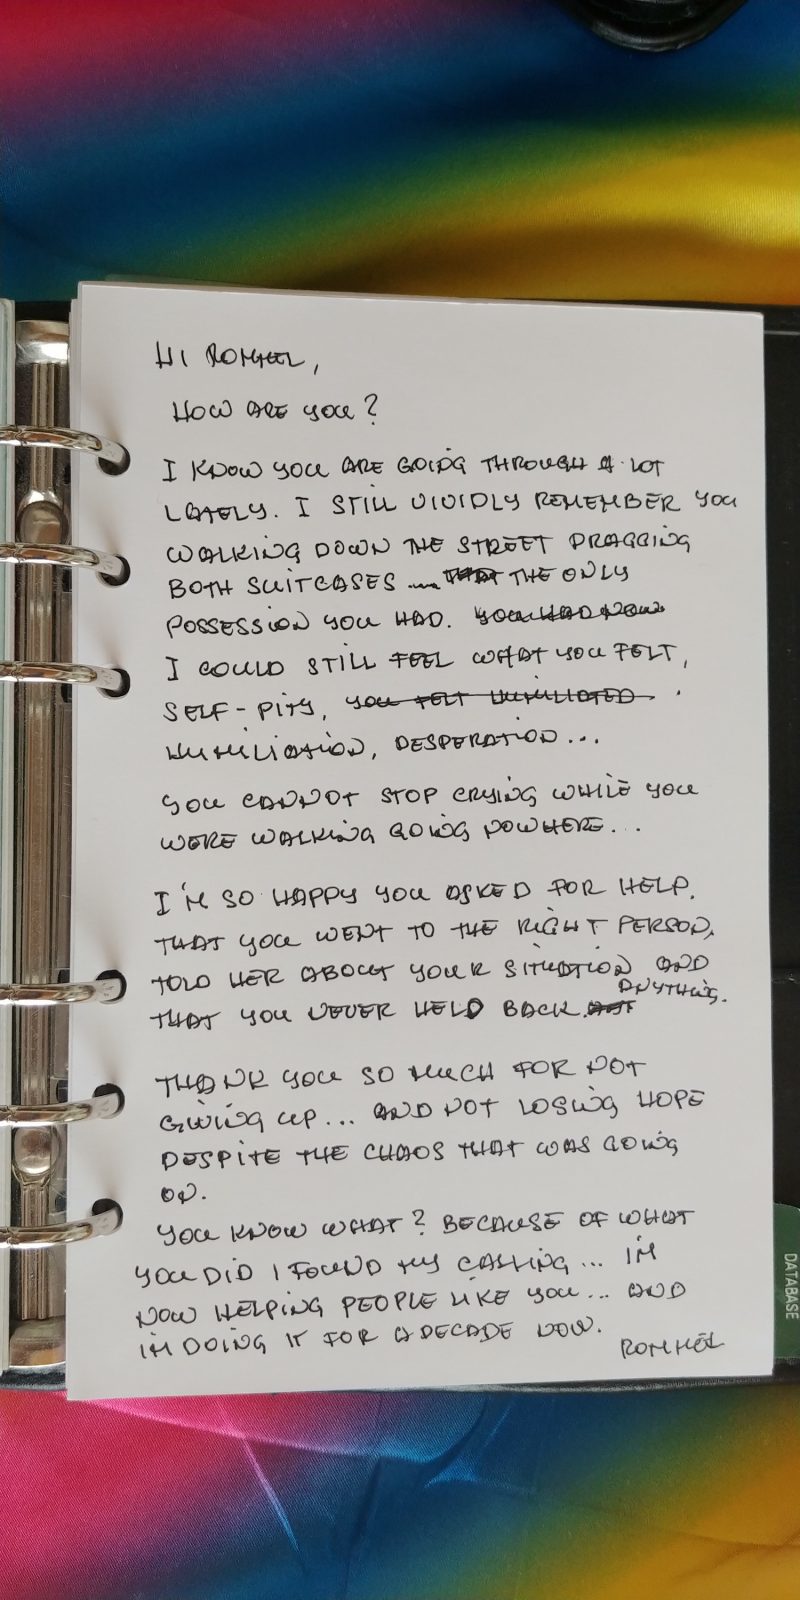 HI ROMMEL,
HOW ARE YOU?
I KNOW YOU ARE GOING THROUGH A LOT
LATELY. I STILL VIVIDLY REMEMBER YOU
WALKING DOWN THE STREET DRAGGING
BOTH SUITCASES ... THAT THE ONLY
POSSESSION YOU HAD. YOU HAD NOW
I COULD STILL FEEL WHAT YOU FELT,
SELF-PITY, YOU FELT HUMILIATED.
HUMILIATION, DESPERATION...
YOU CANNOT STOP CRYING WHILE YOU
WERE WALKING GOING NOWHERE...
I'M SO HAPPY YOU ASKED FOR HELP.
THAT YOU WENT TO THE RIGHT PERSON,
TOLD HER ABOUT YOUR SITUATION AND
THAT YOU NEVER HELD BACK ANYTHING.
THANK YOU SO MUCH FOR NOT
GIVING UP... AND NOT LOSING HOPE
DESPITE THE CHAOS THAT WAS GOING
ON.
YOU KNOW WHAT? BECAUSE OF WHAT
YOU DID I FOUND MY CALLING... IM
NOW HELPING PEOPLE LIKE YOU... AND
IM DOING IT FOR A DECADE NOW.
ROMMEL
DATABASE